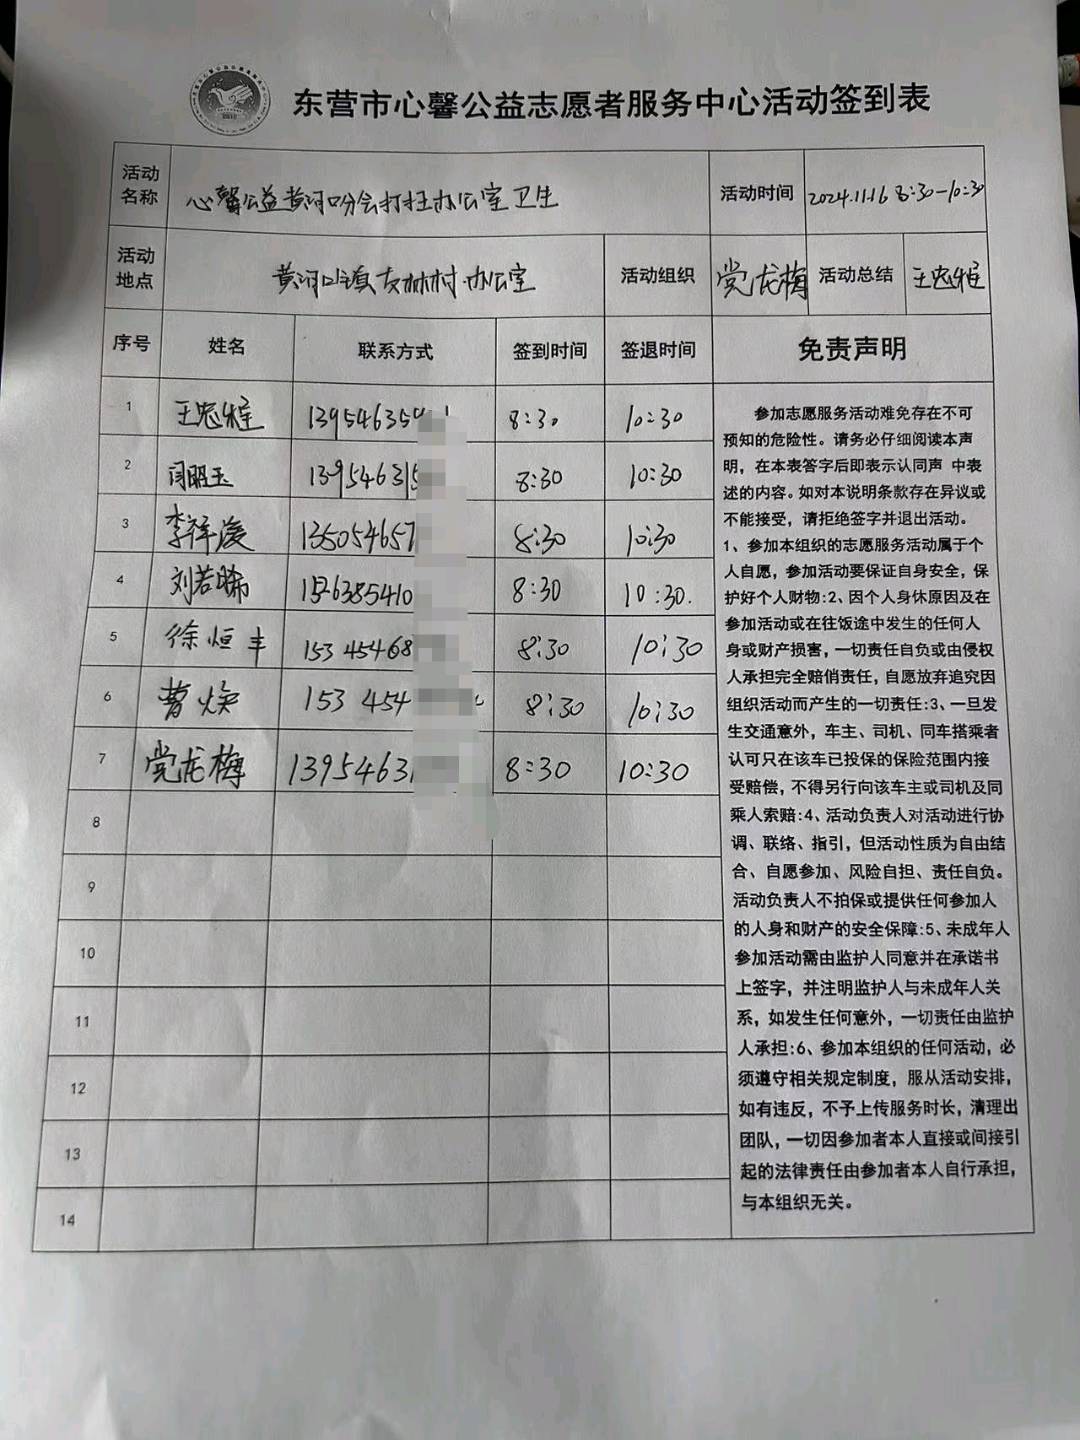 东营市心馨公益志愿者服务中心活动签到表
活动名称 心馨公益黄河口分会打扫办公室卫生 活动时间 2024.11.16 8:30-10:30
活动地点 黄河口镇友林村办公室 活动组织 党龙梅 活动总结 王忠
序号 姓名 联系方式 签到时间 签退时间 免责声明
1 王忠 139546350 8:30 10:30
2 闫昭玉 139546315 8:30 10:30
3 李祥 135054657 8:30 10:30
4 刘若晞 1526385410 8:30 10:30.
5 徐恒丰 153 45468 8:30 10:30
6 曹焕 153 454 8:30 10:30
7 党龙梅 13954631 8:30 10:30
8
9
10
11
12
13
14
参加志愿服务活动难免存在不可
预知的危险性。请务必仔细阅读本声
明，在本表答字后即表示认同声 中表
述的内容。如对本说明条款存在异议或
不能接受，请拒绝签字并退出活动。
1、参加本组织的志愿服务活动属于个
人自愿，参加活动要保证自身安全，保
护好个人财物:2、因个人身休原因及在
参加活动或在往饭途中发生的任何人
身或财产损害，一切责任自负或由侵权
人承担完全赔俏责任，自愿放弃追究因
组织活动而产生的一切责任:3、一旦发
生交通意外，车主、司机、同车搭乘者
认可只在该车已投保的保险范围内接
受赔偿，不得另行向该车主或司机及同
乘人索赔:4、活动负责人对活动进行协
调、联络、指引，但活动性质为自由结
合、自愿参加、风险自担、责任自负。
活动负责人不拍保或提供任何参加人
的人身和财产的安全保障:5、未成年人
参加活动需由监护人同意并在承诺书
上签字，并注明监护人与未成年人关
系，如发生任何意外，一切责任由监护
人承担:6、参加本组织的任何活动，必
须遵守相关规定制度，服从活动安排，
如有违反，不予上传服务时长，清理出
团队，一切因参加者本人直接或间接引
起的法律责任由参加者本人自行承担，
与本组织无关。